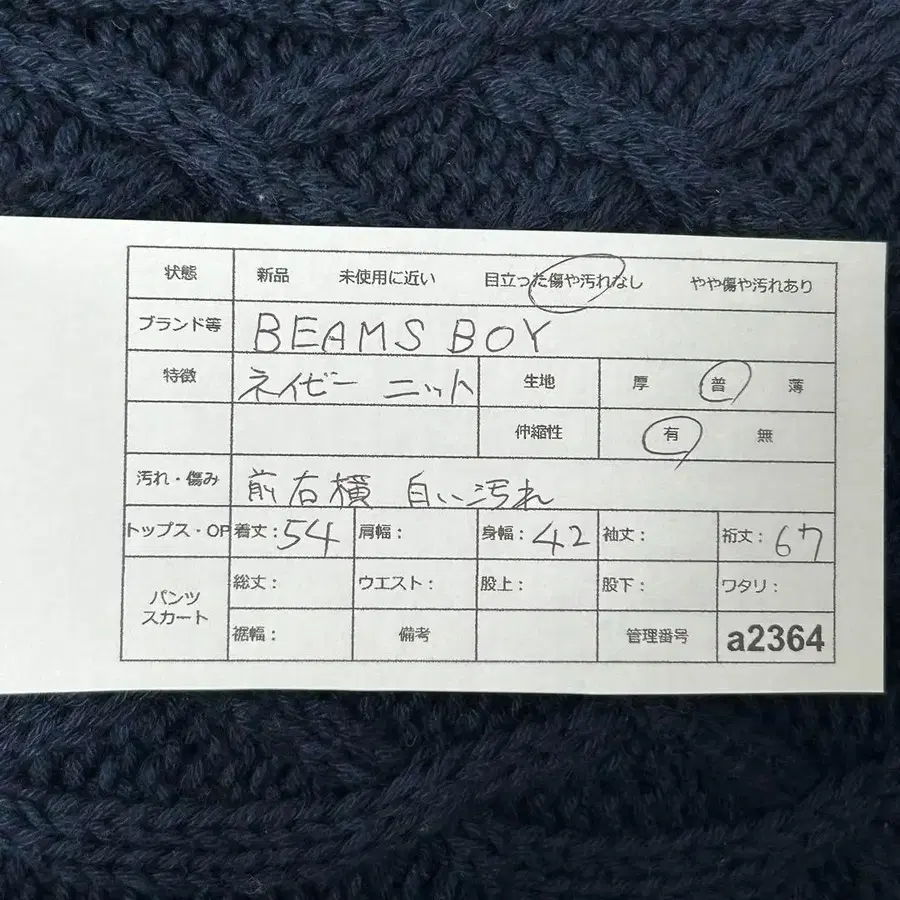 状態 新品 未使用に近い 目立った傷や汚れなし やや傷や汚れあり
ブランド等 BEAMS BOY
特徴 ネイビー ニット 生地 厚 普 薄
伸縮性 有 無
汚れ・傷み 前右横 白い汚れ
トップス・OP 着丈：54 肩幅： 身幅：42 袖丈： 裄丈：67
パンツ スカート 総丈： ウエスト： 股上： 股下： ワタリ：
裾幅： 備考 管理番号 a2364